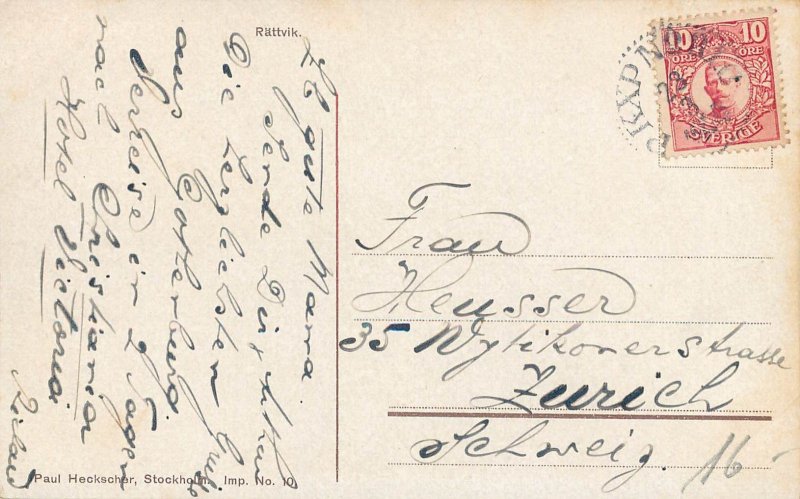 Rättvik.
Lb gute Mama.
Sende Dir
Die herzlichsten Grüsse
aus Gothenburg.
Verreise in 2 Tagen
nach Christiania
Hotel Victoria.
Richard
10 10
ÖRE ÖRE
SVERIGE
PKXP No
Frau
Heusser
35 Wytikonerstrasse
Zürich
Schweiz. 16
Paul Heckscher, Stockholm. Imp. No. 10.